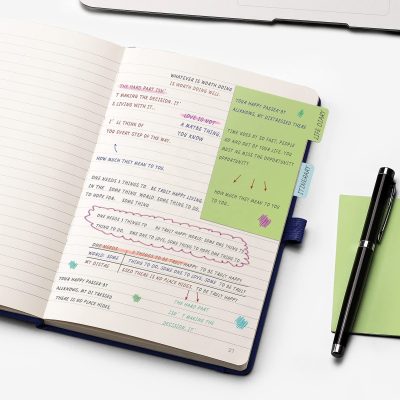 WHATEVER IS WORTH DOING
IS WORTH DOING WELL.
THE HARD PART ISN'
T MAKING THE DECISION. IT'
S LIVING WITH IT.
LOVE IS NOT
A MAYBE THING.
YOU KNOW
I' LL THINK OF
YOU EVERY STEP OF THE WAY.
HOW MUCH THEY MEAN TO YOU.
ONE NEEDS 3 THINGS TO BE TRULY HAPPY LIVING
IN THE SOME THING WORLD SOME THING TO DO,
TO HOPE FOR. SOME THING
ONE NEEDS 3 THINGS TO BE TRULY HAPPY WORLD: SOME ONE THING
THING TO DO, ONE ONE TO LOVE, SOME THING TO HOPE ONE THING
ONE NEEDS 3 THINGS TO BE TRULY HAPPY. TO BE TRULY HAPPY
WORLD SOME THING TO DO, SOME ONE TO LOVE, SOME TO BE TRULY
MY DISTRE USED THERE IS NO PLACE MIDES. TO BE TRULY HAPPY.
YOUR HAPPY PASSER-BY
ALLKNOWS, MY DISTRESSED
THERE IS NO PLACE HIDES.
THE HARD PART
ISN' T MAKING THE
DECISION. IT'
YOUR HAPPY PASSER-BY
ALLKNOWS, MY DISTRESSED THERE
TIME GOES BY SO FAST, PEOPLE
GO AND OUT OF YOUR LIFE. YOU
MUST NE MISS THE OPPORTUNITY
OPPORTUNITY
HOW MUCH THEY MEAN TO YOU
TO YOU.
LIFE DIARY
ITINERARY
27